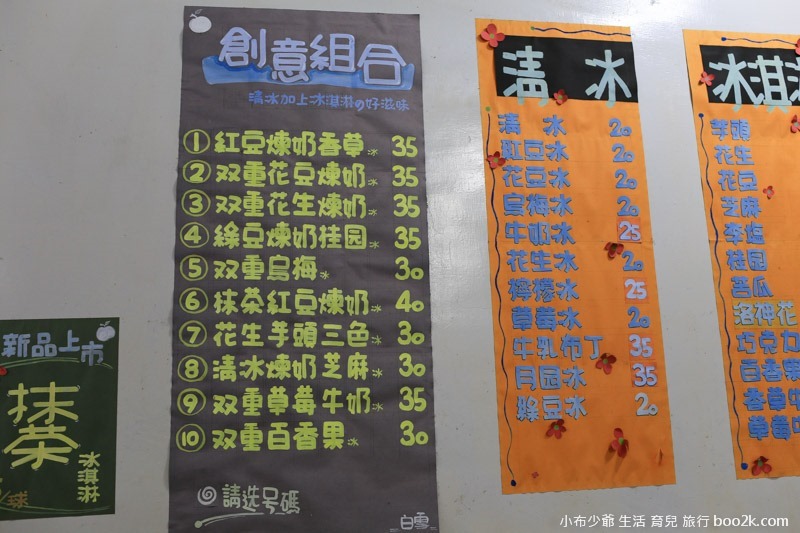 新品上市
抹茶
冰淇淋
球
創意組合
清冰加上冰淇淋の好滋味
① 紅豆煉奶香草冰 35
② 双重花豆煉奶冰 35
③ 双重花生煉奶冰 35
④ 綠豆煉奶桂园冰 35
⑤ 双重烏梅冰 30
⑥ 抹茶紅豆煉奶冰 40
⑦ 花生芋頭三色冰 30
⑧ 清冰煉奶芝麻冰 30
⑨ 双重草莓牛奶冰 35
⑩ 双重百香果冰 30
請选号碼
白雪
清冰
清冰 20
紅豆冰 20
花豆冰 20
烏梅冰 20
牛奶冰 25
花生冰 20
檸檬冰 25
草莓冰 20
牛乳布丁 35
月园冰 35
綠豆冰 20
冰淇淋
芋頭
花生
花豆
芝麻
李塩
桂园
苦瓜
洛神花
巧克力
百香果
香草牛
草莓牛
小布少爺 生活 育兒 旅行 boo2k.com